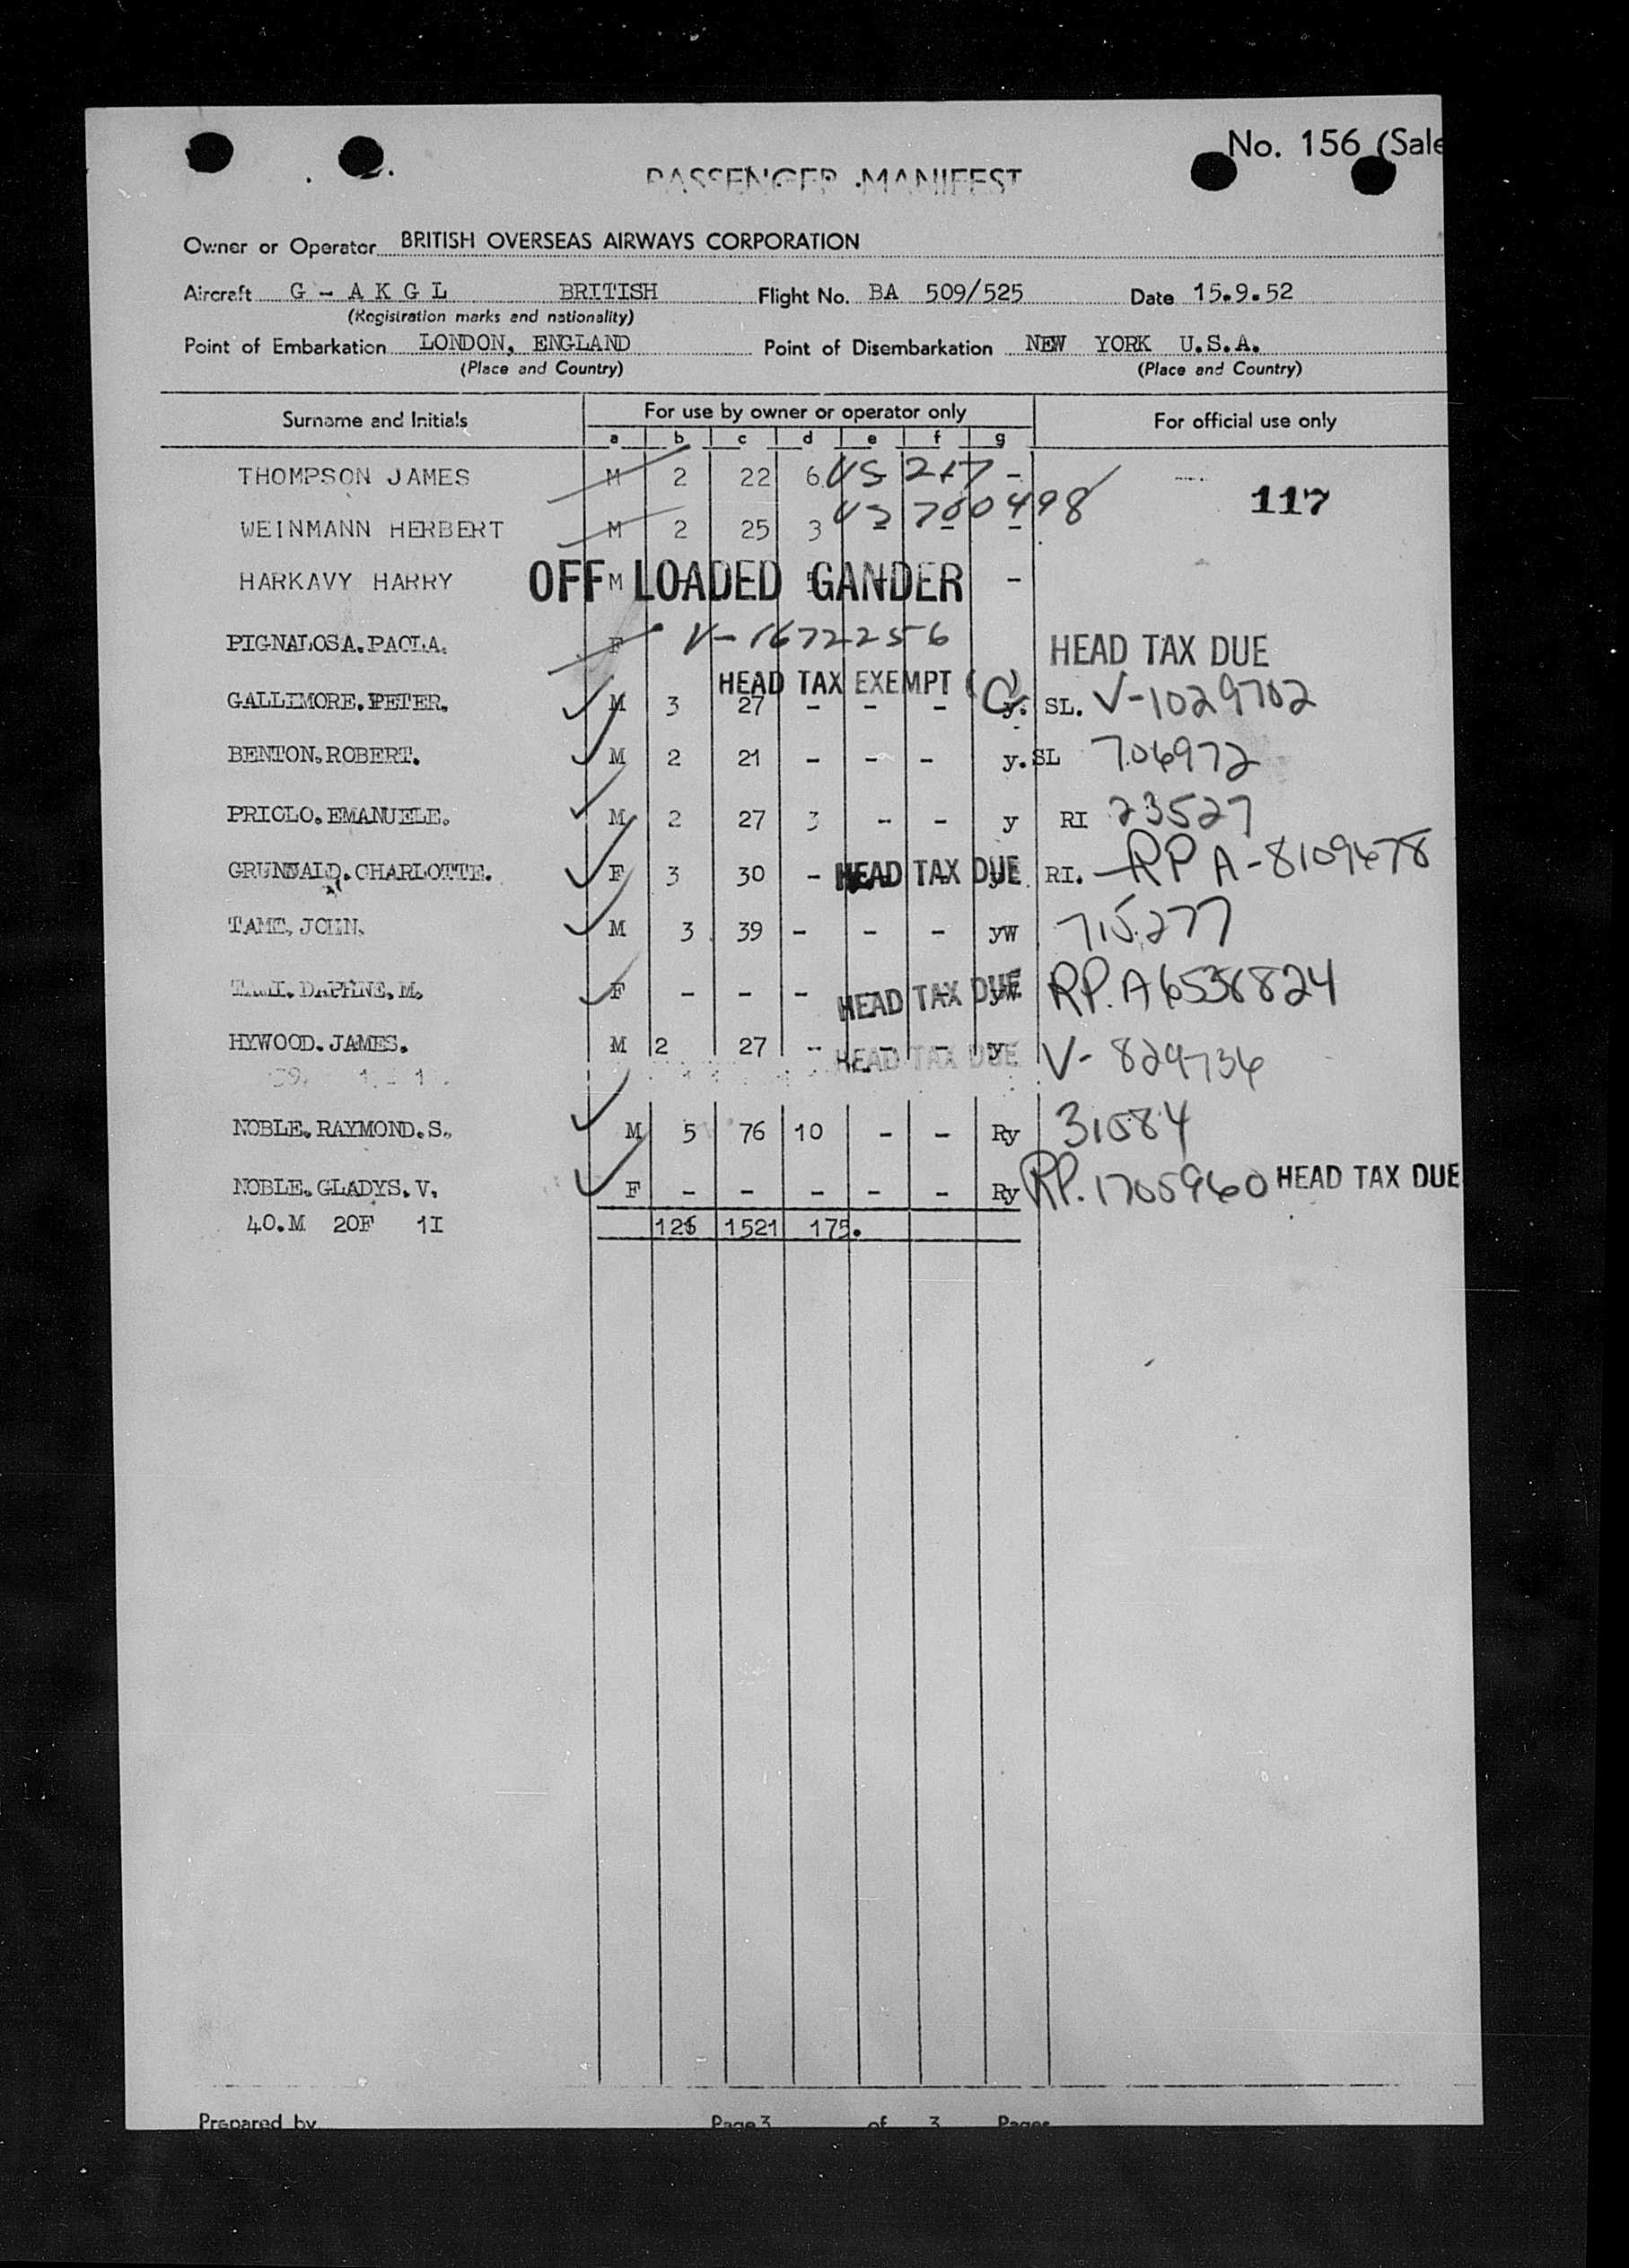 No. 156 (Sale
PASSENGER MANIFEST
Owner or Operator BRITISH OVERSEAS AIRWAYS CORPORATION
Aircraft G - A K G L BRITISH Flight No. BA 509/525 Date 15.9.52
(Registration marks and nationality)
Point of Embarkation LONDON, ENGLAND Point of Disembarkation NEW YORK U.S.A.
(Place and Country) (Place and Country)
Surname and Initials For use by owner or operator only For official use only
a b c d e f g
THOMPSON JAMES M 2 22 6 US 217 -
117
WEINMANN HERBERT M 2 25 3 - - - 700498
HARKAVY HARRY M OFF LOADED GANDER -
PIGNALOSA.PAOLA. F V-1672256 HEAD TAX DUE
HEAD TAX EXEMPT (C)
GALLIMORE.PETER. M 3 27 - - - y. SL. V-1029702
BENTON.ROBERT. M 2 21 - - - y. SL 706972
PRIOLO.EMANUELE. M 2 27 3 - - y RI 23527
GRUNWALD.CHARLOTTE. F 3 30 - HEAD TAX DUE RI. RP A-8109478
TAMI, JOHN. M 3 39 - - - yW 715277
TAMI. DAPHNE. M. F - - - HEAD TAX DUE yW RP. A6538824
HYWOOD. JAMES. M 2 27 - - - y V- 829736
HEAD TAX DUE
NOBLE. RAYMOND. S. M 5 76 10 - - Ry 31584
NOBLE. GLADYS. V. F - - - - - Ry RP. 1705960 HEAD TAX DUE
40.M 20F 1I 126 1521 175.
Prepared by Page 3 of 3 Pages